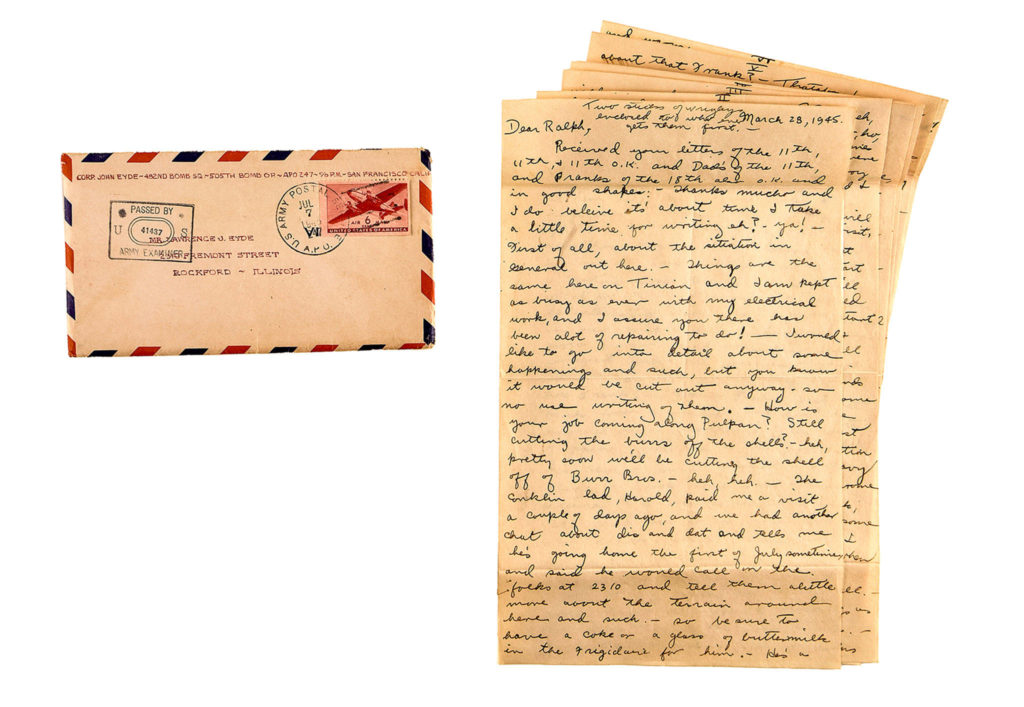 CORP. JOHN EYDE-482ND BOMB SQ-505TH BOMB GR-APO 247-% P.M.-SAN FRANCISCO CALIF
PASSED BY
U S
41437
ARMY EXAMINER
U.S. ARMY POSTAL
A.P.O.
JUL
7
AIR 6¢
UNITED STATES OF AMERICA
MR. LAWRENCE J. EYDE
2310 FREMONT STREET
ROCKFORD ~ ILLINOIS
and
VI
about that Frank? - Thats
V
III
II
Two sticks of wrigleys
enclosed to who ever
gets them first. -
March 28, 1945.
Dear Ralph,
Received your letters of the 11th,
11th, & 11th O.K. and Dad's of the 11th,
and Franks of the 18th all O.K. and
in good shape. - Thanks mucho and
I do beleive it's about time I take
a little time for writing eh? - ya! -
First of all, about the sitation in
general out here. - Things are the
same here on Tinian and I am kept
as busy as ever with my electrical
work, and I assure you there has
been alot of repairing to do! - I would
like to go into detail about some
happenings and such, but you know
it would be cut out anyway - so
no use writing of them. - How is
your job coming along Pulpan? Still
cutting the burrs off the shells? - heh,
pretty soon we'll be cutting the shell
off of Burr Bros. - heh, heh. - The
Conklin lad, Harold, paid me a visit
a couple of days ago, and we had another
chat about dis and dat and tells me
he's going home the first of July sometime,
and said he would call on the
folks at 2310 and tell them alittle
more about the terrain around
here and such. - so be sure to
have a coke or a glass of buttermilk
in the Frigidaire for him. - He's a